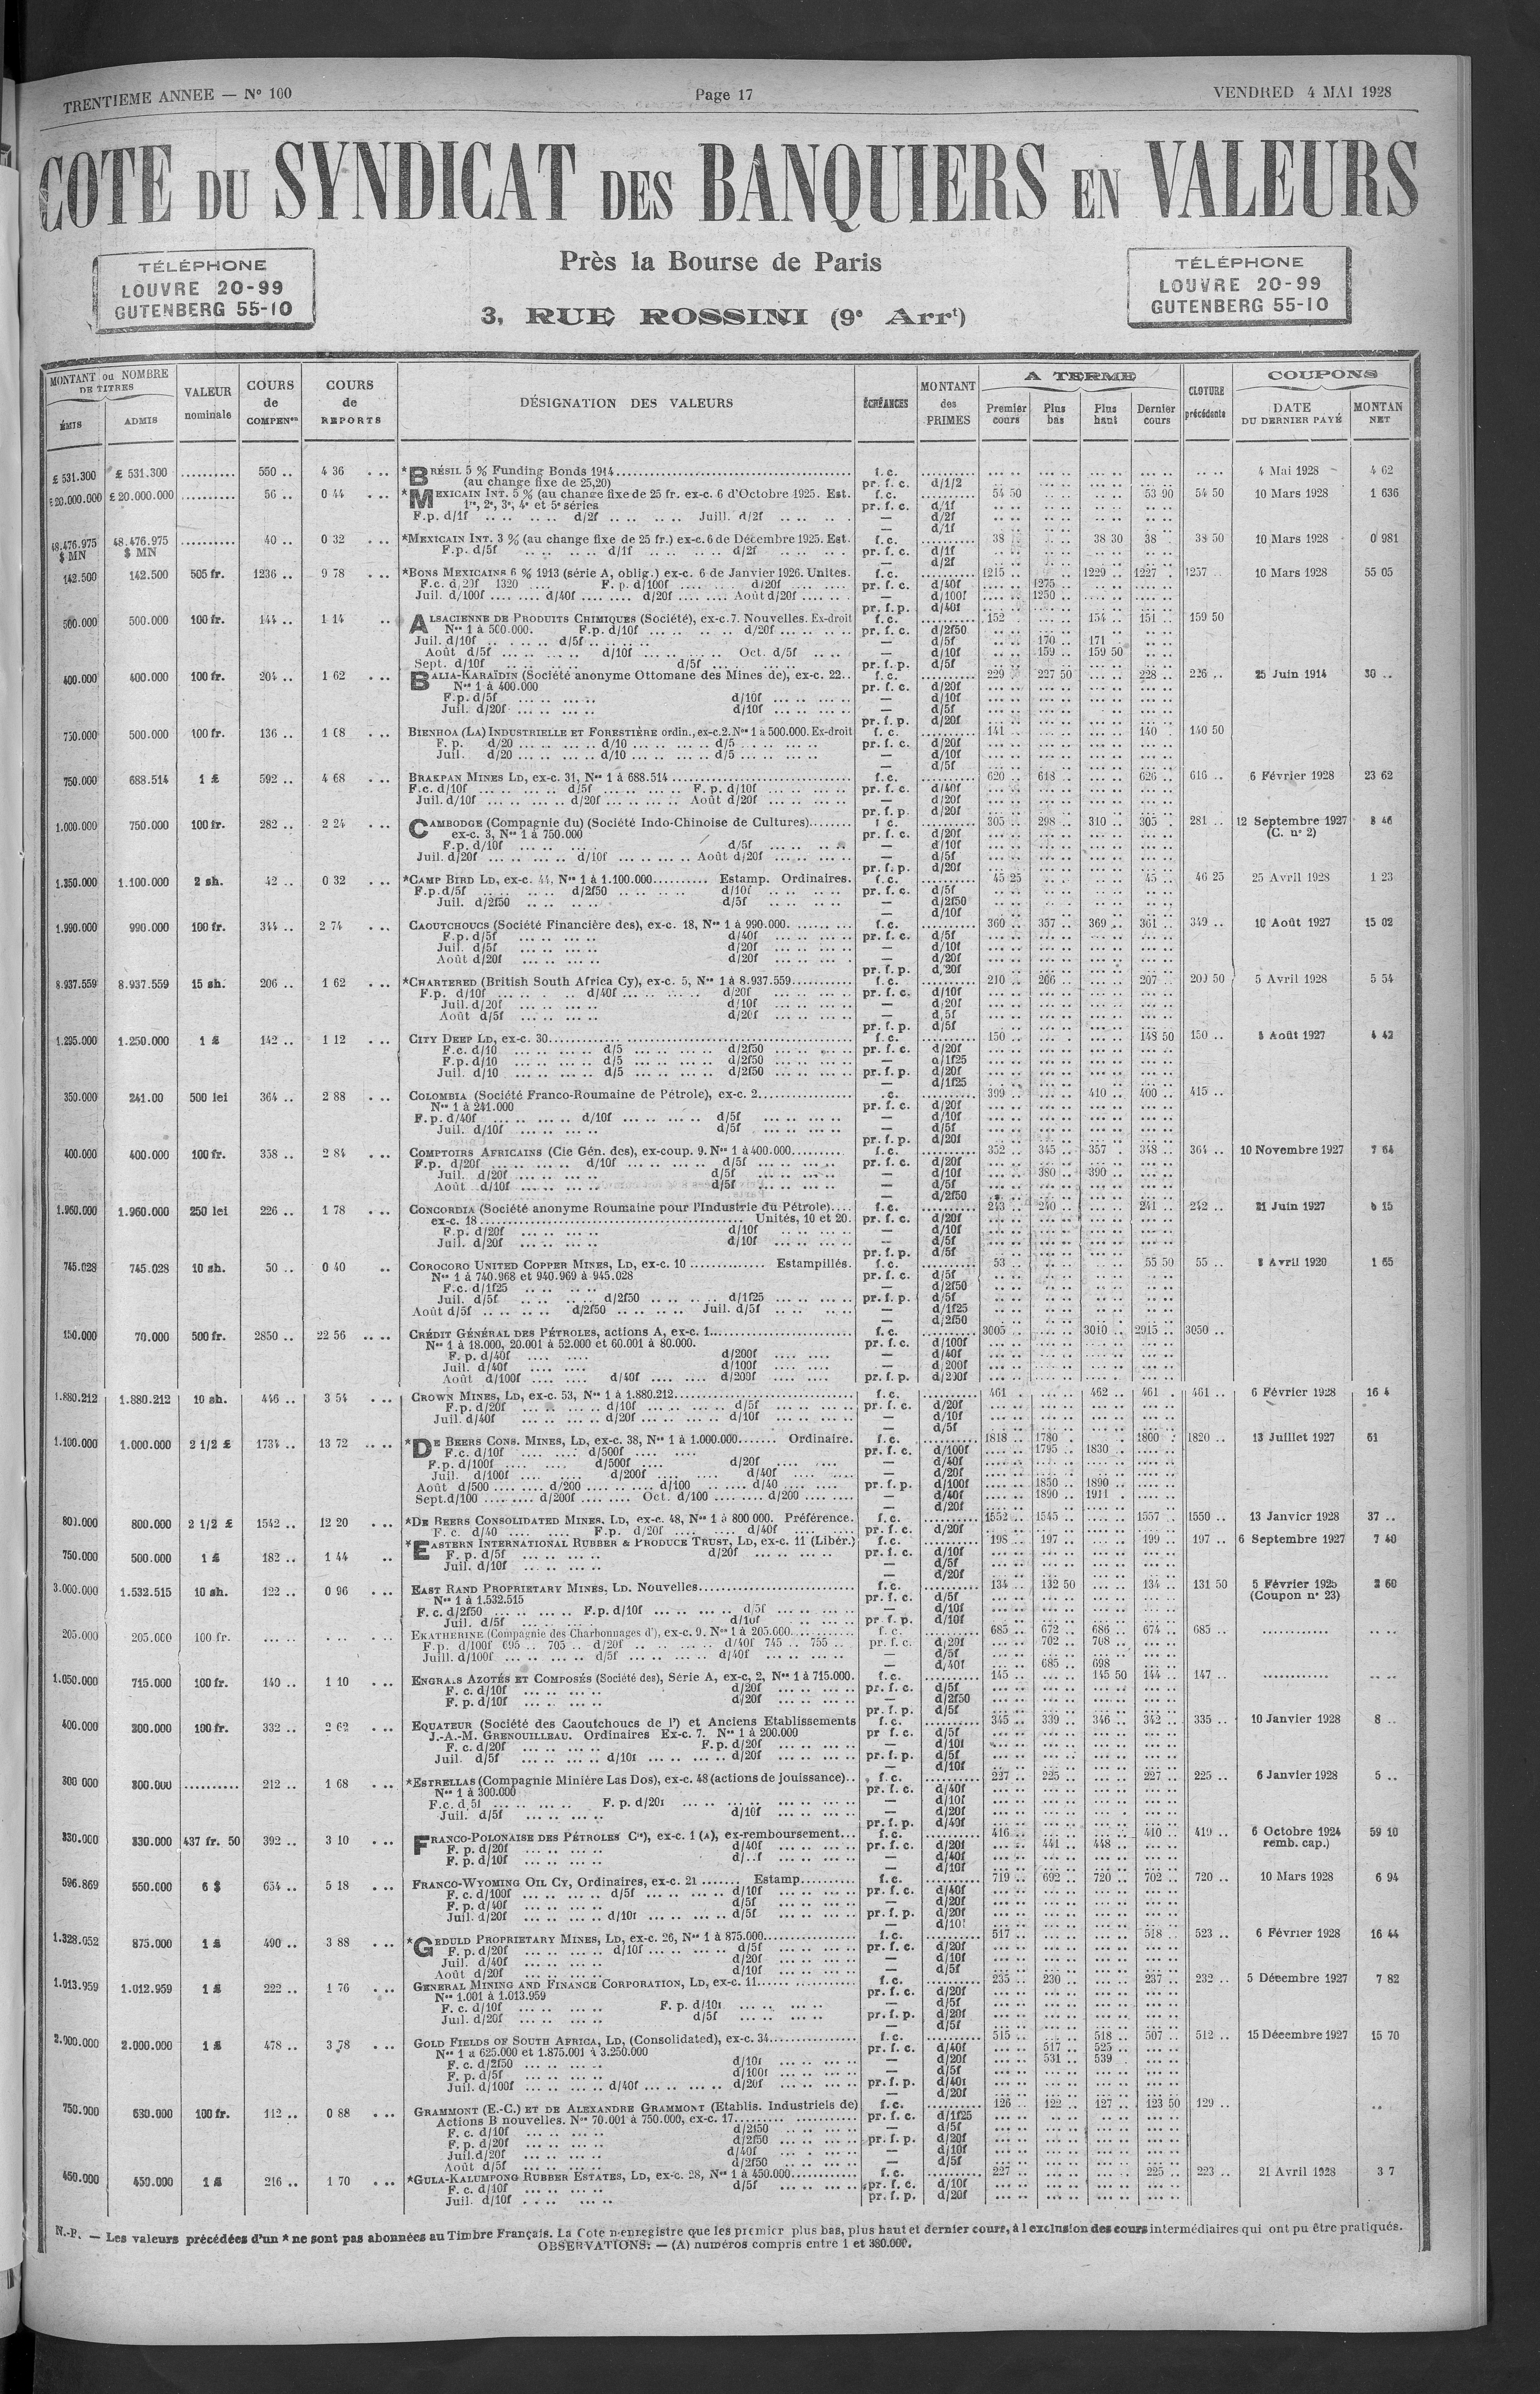 TRENTIEME ANNEE — N° 100 Page 17 VENDRED 4 MAI 1928
COTE DU SYNDICAT DES BANQUIERS EN VALEURS
TÉLÉPHONE
LOUVRE 20-99
GUTENBERG 55-10
Près la Bourse de Paris
3, RUE ROSSINI (9e Arrt)
TÉLÉPHONE
LOUVRE 20-99
GUTENBERG 55-10
MONTANT ou NOMBRE DE TITRES
ÉMIS ADMIS
VALEUR nominale
COURS de COMPENon
COURS de REPORTS
DÉSIGNATION DES VALEURS
ÉCHÉANCES
MONTANT des PRIMES
A TERME
Premier cours Plus bas Plus haut Dernier cours
CLOTURE précédente
COUPONS
DATE DU DERNIER PAYÉ MONTAN NET
£ 531.300 £ 531.300 .......... 550 .. 4 36 *BRÉSIL 5 % Funding Bonds 1914 f.c. 4 Mai 1928 4 62
(au change fixe de 25,20) pr. f. c. d/1/2
£20.000.000 £ 20.000.000 .......... 56 .. 0 44 *MEXICAIN INT. 5 % (au change fixe de 25 fr. ex-c. 6 d'Octobre 1925. Est. f.c. 54 50 53 90 54 50 10 Mars 1928 1 636
1re, 2e, 3e, 4e et 5e séries pr. f. c. d/1f
F.p. d/1f d/2f Juill. d/2f — d/2f
— d/1f
48.476.975 $ MN 48.476.975 $ MN .......... 40 .. 0 32 *MEXICAIN INT. 3 % (au change fixe de 25 fr.) ex-c. 6 de Décembre 1925. Est. f.c. 38 38 30 38 .. 38 50 10 Mars 1928 0 981
F.p. d/5f d/1f d/2f pr. f. c. d/1f
— d/2f
142.500 142.500 505 fr. 1236 .. 9 78 *BONS MEXICAINS 6 % 1913 (série A, oblig.) ex-c. 6 de Janvier 1926. Unites. f.c. 1215 .. 1229 .. 1227 . 1257 .. 10 Mars 1928 55 05
F.c. d/20f 1320 F. p. d/100f d/20f pr. f. c. d/40f 1275
Juil. d/100f d/40f d/20f Août d/20f — d/100f 1250
pr. f. p. d/40f
500.000 500.000 100 fr. 144 .. 1 14 ALSACIENNE DE PRODUITS CHIMIQUES (Société), ex-c. 7. Nouvelles. Ex-droit f.c. 152 154 .. 151 .. 159 50
Nos 1 à 500.000. F.p. d/10f d/20f pr. f. c. d/2f50
Juil. d/10f d/5f — d/5f 170 .. 171
Août d/5f d/10f Oct. d/5f — d/10f 159 .. 159 50
Sept. d/10f d/5f pr. f. p. d/5f
400.000 400.000 100 fr. 204 .. 1 62 BALIA-KARAÏDIN (Société anonyme Ottomane des Mines de), ex-c. 22.. f.c. 229 227 50 228 .. 226 .. 25 Juin 1914 30 ..
Nos 1 à 400.000 pr. f. c. d/20f
F.p. d/5f d/10f — d/10f
Juil. d/20f d/10f — d/5f
pr. f. p. d/20f
750.000 500.000 100 fr. 136 .. 1 68 BIENHOA (LA) INDUSTRIELLE ET FORESTIÈRE ordin., ex-c. 2. Nos 1 à 500.000. Ex-droit f.c. 141 140 .. 140 50
F. p. d/20 d/10 d/5 pr. f. c. d/20f
Juil. d/20 d/10 d/5 — d/10f
— d/5f
750.000 688.514 1 £ 592 .. 4 68 BRAKPAN MINES LD, ex-c. 31, Nos 1 à 688.514 f.c. 620 .. 618 .. 626 .. 616 .. 6 Février 1928 23 62
F.c. d/10f d/5f F. p. d/10f pr. f. c. d/40f
Juil. d/10f d/20f Août d/20f — d/20f
pr. f. p. d/20f
1.000.000 750.000 100 fr. 282 .. 2 24 CAMBODGE (Compagnie du) (Société Indo-Chinoise de Cultures) f.c. 305 .. 298 .. 310 .. 305 .. 281 .. 12 Septembre 1927 8 46
ex-c. 3, Nos 1 à 750.000 pr. f. c. d/20f (C. n° 2)
F.p. d/10f d/5f — d/10f
Juil. d/20f d/10f Août d/20f — d/5f
pr. f. p. d/20f
1.350.000 1.100.000 2 sh. 42 .. 0 32 *CAMP BIRD LD, ex-c. 44, Nos 1 à 1.100.000 Estamp. Ordinaires. f.c. 45 25 45 .. 46 25 25 Avril 1928 1 23
F.p. d/5f d/2f50 d/10f pr. f. c. d/5f
Juil. d/2f50 d/5f — d/2f50
— d/10f
1.990.000 990.000 100 fr. 344 .. 2 74 CAOUTCHOUCS (Société Financière des), ex-c. 18, Nos 1 à 990.000 f.c. 360 .. 357 .. 369 .. 361 .. 349 .. 10 Août 1927 15 02
F.p. d/5f d/40f pr. f. c. d/5f
Juil. d/5f d/20f — d/10f
Août d/20f d/20f — d/20f
pr. f. p. d/20f
8.937.559 8.937.559 15 sh. 206 .. 1 62 *CHARTERED (British South Africa Cy), ex-c. 5, Nos 1 à 8.937.559 f.c. 210 .. 206 .. 207 .. 209 50 5 Avril 1928 5 54
F.p. d/10f d/40f d/20f pr. f. c. d/10f
Juil. d/20f d/10f — d/20f
Août d/5f d/20f — d/5f
pr. f. p. d/5f
1.295.000 1.250.000 1 £ 142 .. 1 12 CITY DEEP LD, ex-c. 30 f.c. 150 148 50 150 .. 5 Août 1927 4 42
F.c. d/10 d/5 d/2f50 pr. f. c. d/20f
F.p. d/10 d/5 d/2f50 — d/1f25
Juil. d/10 d/5 d/2f50 pr. f. p. d/20f
— d/1f25
350.000 241.00 500 lei 364 .. 2 88 COLOMBIA (Société Franco-Roumaine de Pétrole), ex-c. 2 .c. 399 410 .. 400 .. 415 ..
Nos 1 à 241.000 pr. f. c. d/20f
F.p. d/40f d/10f d/5f — d/10f
Juil. d/10f d/5f — d/5f
pr. f. p. d/20f
400.000 400.000 100 fr. 358 .. 2 84 COMPTOIRS AFRICAINS (Cie Gén. des), ex-coup. 9. Nos 1 à 400.000 f.c. 352 .. 345 .. 357 .. 348 .. 364 .. 10 Novembre 1927 7 64
F.p. d/20f d/10f d/5f pr. f. c. d/20f
Juil. d/20f d/5f — d/10f 380 .. 390
Août d/10f d/5f — d/5f
— d/2f50
1.960.000 1.960.000 250 lei 226 .. 1 78 CONCORDIA (Société anonyme Roumaine pour l'Industrie du Pétrole) f.c. 243 .. 240 .. 241 .. 242 .. 21 Juin 1927 6 15
ex-c. 18 Unités, 10 et 20. pr. f. c. d/20f
F.p. d/20f d/10f — d/10f
Juil. d/20f d/10f — d/5f
pr. f. p. d/5f
745.028 745.028 10 sh. 50 .. 0 40 COROCORO UNITED COPPER MINES, LD, ex-c. 10 Estampillés. f.c. 53 55 50 55 .. 8 Avril 1920 1 65
Nos 1 à 740.968 et 940.969 à 945.028 pr. f. c. d/5f
F.c. d/1f25 — d/2f50
Juil. d/5f d/2f50 d/1f25 pr. f. p. d/5f
Août d/5f d/2f50 Juil. d/5f — d/1f25
— d/2f50
150.000 70.000 500 fr. 2850 .. 22 56 CRÉDIT GÉNÉRAL DES PÉTROLES, actions A, ex-c. 1 f.c. 3005 3010 .. 2915 .. 3050 ..
Nos 1 à 18.000, 20.001 à 52.000 et 60.001 à 80.000. pr. f. c. d/100f
F. p. d/40f d/200f — d/40f
Juil. d/40f d/100f — d/200f
Août d/100f d/40f d/200f pr. f. p. d/200f
1.880.212 1.880.212 10 sh. 446 .. 3 54 CROWN MINES, LD, ex-c. 53, Nos 1 à 1.880.212 f.c. 461 . 462 .. 461 . 461 .. 6 Février 1928 16 4
F.p. d/20f d/10f d/5f pr. f. c. d/20f
Juil. d/40f d/20f d/10f — d/10f
— d/5f
1.100.000 1.000.000 2 1/2 £ 1734 .. 13 72 *DE BEERS CONS. MINES, LD, ex-c. 38, Nos 1 à 1.000.000 Ordinaire. f.c. 1818 .. 1780 1800 . 1820 .. 13 Juillet 1927 61
F.c. d/10f d/500f pr. f. c. d/100f 1795 .. 1830
F.p. d/100f d/500f d/20f — d/40f
Juil. d/100f d/200f d/40f — d/20f
Août d/500 d/200 d/100 d/40 pr. f. p. d/100f 1850 .. 1890
Sept. d/100 d/200f Oct. d/100 d/200 — d/40f 1890 .. 1911
— d/20f
800.000 800.000 2 1/2 £ 1542 .. 12 20 *DE BEERS CONSOLIDATED MINES. LD, ex-c. 48, Nos 1 à 800 000. Préférence. f.c. 1552 .. 1545 .. 1557 .. 1550 .. 13 Janvier 1928 37 ..
F. c. d/40 F.p. d/20f d/40f pr. f. c. d/20f
750.000 500.000 1 £ 182 .. 1 44 *EASTERN INTERNATIONAL RUBBER & PRODUCE TRUST, LD, ex-c. 11 (Libér.) f.c. 198 .. 197 .. 199 .. 197 .. 6 Septembre 1927 7 40
F. p. d/5f d/20f pr. f. c. d/10f
Juil. d/10f — d/5f
— d/20f
3.000.000 1.532.515 10 sh. 122 .. 0 96 EAST RAND PROPRIETARY MINES, LD. Nouvelles f.c. 134 .. 132 50 134 .. 131 50 5 Février 1925 2 60
Nos 1 à 1.532.515 pr. f. c. d/5f (Coupon n° 23)
F. c. d/2f50 F.p. d/10f d/5f — d/10f
Juil. d/5f d/10f pr f. p. d/10f
205.000 205.000 100 fr. EKATHERINE (Compagnie des Charbonnages d'), ex-c. 9. Nos 1 à 205.000 f.c. 685 .. 672 .. 686 .. 674 .. 685 ..
F.p. d/100f 695 .. 705 .. d/20f d/40f 745 .. 755 .. pr. f. c. d/20f 702 .. 708
Juill. d/100f d/5f d/40f — d/5f
— d/40f 685 .. 698
1.050.000 715.000 100 fr. 140 .. 1 10 ENGRAIS AZOTÉS ET COMPOSÉS (Société des), Série A, ex-c. 2, Nos 1 à 715.000. f.c. 145 145 50 144 .. 147 ..
F. c. d/10f d/20f pr. f. c. d/5f
F. p. d/10f d/20f — d/2f50
pr. f. p. d/5f
400.000 200.000 100 fr. 332 .. 2 62 EQUATEUR (Société des Caoutchoucs de l') et Anciens Etablissements f.c. 345 .. 339 .. 346 .. 342 .. 335 .. 10 Janvier 1928 8 ..
J.-A.-M. GRENOUILLEAU. Ordinaires Ex-c. 7. Nos 1 à 200.000 pr f. c. d/5f
F. c. d/20f F.p. d/20f — d/10f
Juil. d/5f d/10f d/20f pr. f. p. d/5f
— d/10f
300 000 300.000 .......... 212 .. 1 68 *ESTRELLAS (Compagnie Minière Las Dos), ex-c. 48 (actions de jouissance) f.c. 227 .. 225 .. 227 .. 225 .. 6 Janvier 1928 5 ..
Nos 1 à 300.000 pr. f. c. d/40f
F.c. d/5f F. p. d/20f — d/10f
Juil. d/5f d/10f — d/20f
pr. f. p. d/40f
330.000 330.000 437 fr. 50 392 .. 3 10 FRANCO-POLONAISE DES PÉTROLES Cie), ex-c. 1 (A), ex-remboursement f.c. 416 410 .. 419 .. 6 Octobre 1924 59 10
F. p. d/20f d/40f pr. f. c. d/20f 441 .. 448 remb. cap.)
F. p. d/10f d/..f — d/40f
— d/10f
596.869 550.000 6 $ 654 .. 5 18 FRANCO-WYOMING OIL CY, Ordinaires, ex-c. 21 Estamp. f.c. 719 .. 692 .. 720 .. 702 .. 720 .. 10 Mars 1928 6 94
F. c. d/100f d/5f d/10f pr. f. c. d/40f
F. p. d/40f d/5f — d/20f
Juil. d/20f d/10f d/5f pr. f. p. d/20f
— d/10f
1.328.052 875.000 1 £ 490 .. 3 88 *GEDULD PROPRIETARY MINES, LD, ex-c. 26, Nos 1 à 875.000 f.c. 517 518 .. 523 .. 6 Février 1928 16 44
F. p. d/20f d/10f d/5f pr. f. c. d/20f
Juil. d/40f d/20f — d/10f
Août d/20f d/10f — d/5f
1.013.959 1.012.959 1 £ 222 .. 1 76 GENERAL MINING AND FINANCE CORPORATION, LD, ex-c. 11 f.c. 235 .. 230 .. 237 .. 232 .. 5 Décembre 1927 7 82
Nos 1.001 à 1.013.959 pr. f. c. d/20f
F. c. d/10f F. p. d/10f — d/5f
Juil. d/20f d/5f pr. f. p. d/20f
— d/5f
2.000.000 2.000.000 1 £ 478 .. 3 78 GOLD FIELDS OF SOUTH AFRICA, LD, (Consolidated), ex-c. 34 f.c. 515 518 .. 507 .. 512 .. 15 Décembre 1927 15 70
Nos 1 à 625.000 et 1.875.001 à 3.250.000 pr. f. c. d/40f 517 .. 525
F. c. d/2f50 d/10f — d/20f 531 .. 539
F. p. d/5f d/100f — d/5f
Juil. d/100f d/40f d/20f pr. f. p. d/40f
— d/20f
750.000 630.000 100 fr. 112 .. 0 88 GRAMMONT (E.-C.) ET DE ALEXANDRE GRAMMONT (Etablis. Industriels de) f.c. 126 .. 122 .. 127 .. 123 50 129 ..
Actions B nouvelles. Nos 70.001 à 750.000, ex-c. 17 pr. f. c. d/1f25
F. c. d/10f d/2f50 — d/5f
F. p. d/20f d/2f50 pr. f. p. d/20f
Juil. d/20f d/40f — d/10f
Août d/5f d/2f50 — d/5f
450.000 450.000 1 £ 216 .. 1 70 *GULA-KALUMPONG RUBBER ESTATES, LD, ex-c. 28, Nos 1 à 450.000 f.c. 227 225 .. 223 .. 21 Avril 1928 3 7
F. c. d/10f d/5f pr. f. c. d/10f
Juil. d/10f pr. f. p. d/20f
N.-P. — Les valeurs précédées d'un * ne sont pas abonnées au Timbre Français. La Cote n'enregistre que les premier plus bas, plus haut et dernier cours, à l exclusion des cours intermédiaires qui ont pu être pratiqués.
OBSERVATIONS: — (A) numéros compris entre 1 et 380.000.